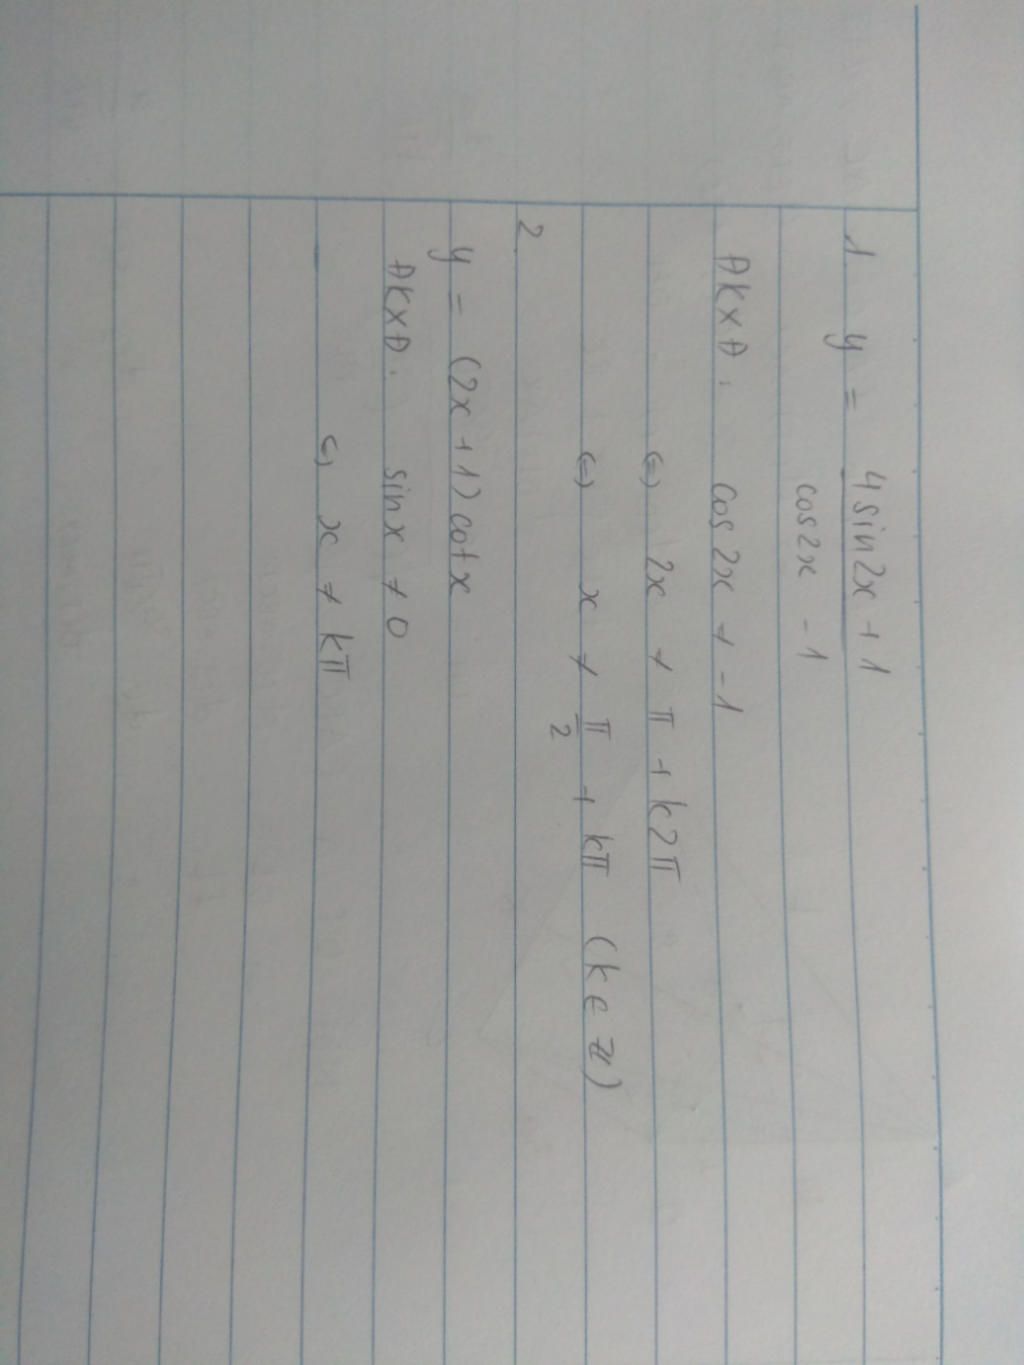 1 y = 4sin2x + 1
cos2x - 1
ĐKXĐ. cos2x ≠ -1
(=) 2x ≠ π + k2π
(=) x ≠ π/2 + kπ (k ∈ Z)
2
y = (2x + 1) cotx
ĐKXĐ. sinx ≠ 0
(=) x ≠ kπ